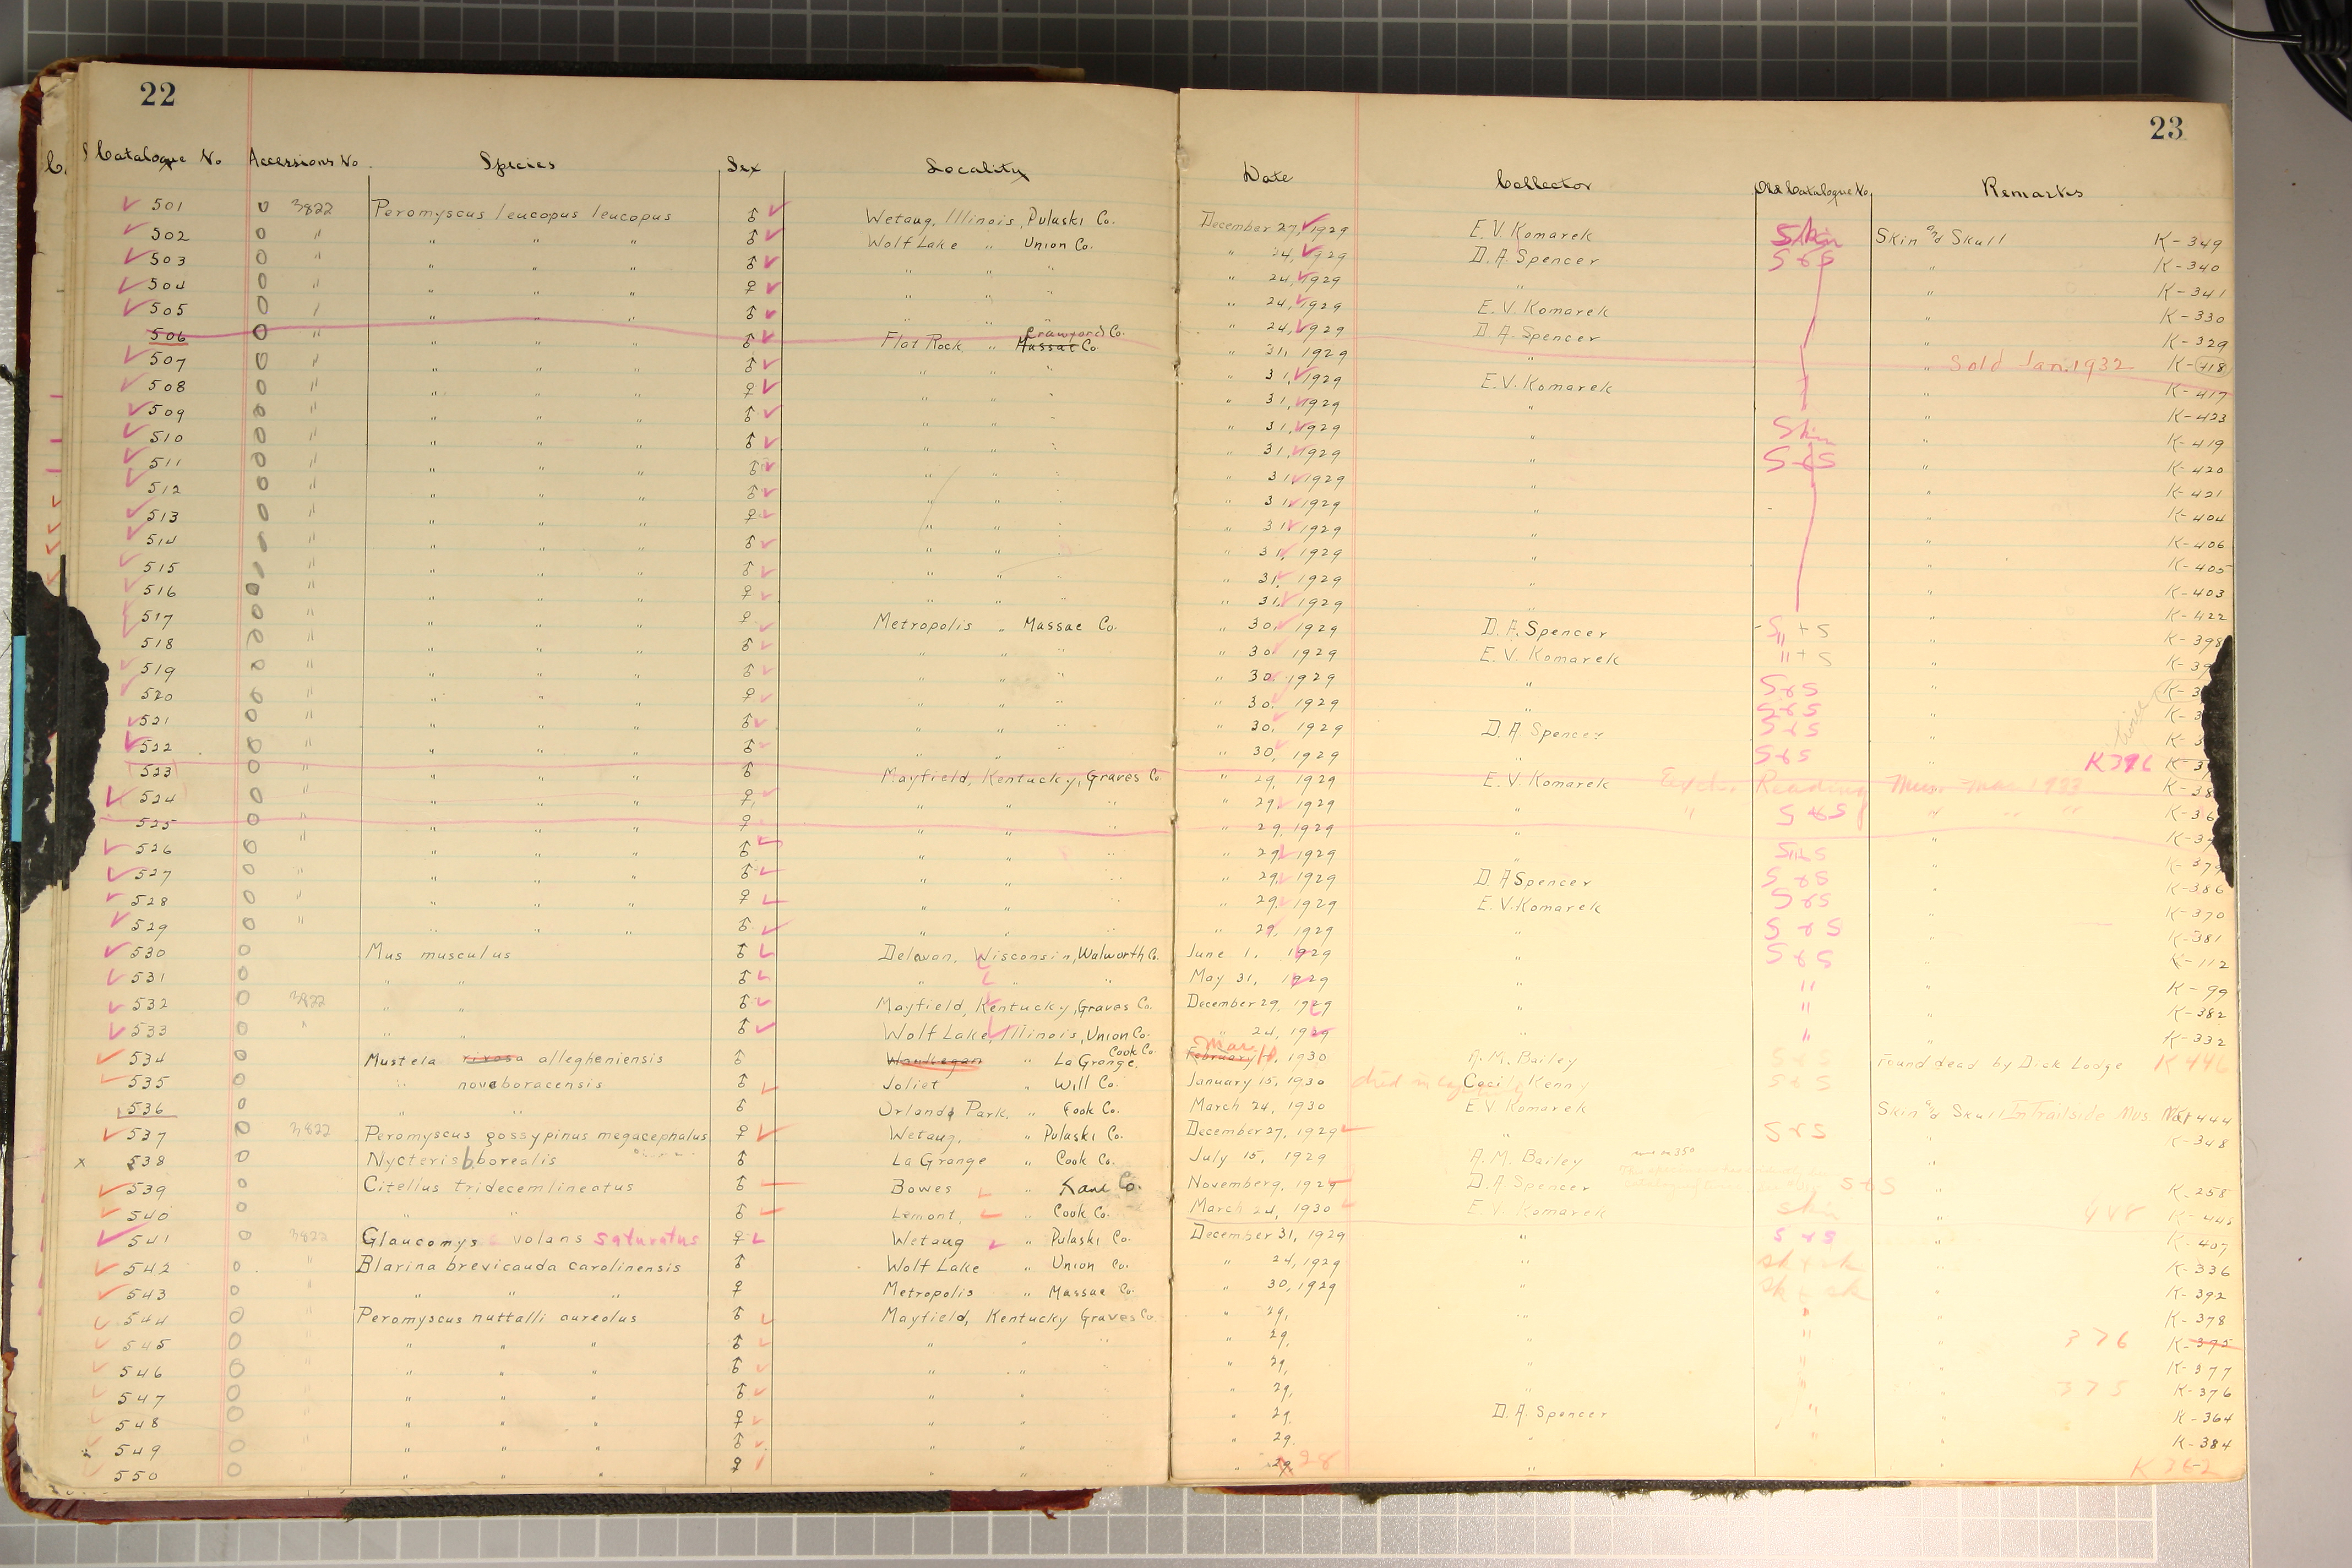 22
23
Catalogue No Accessions No. Species Sex Locality Date Collector Old Catalogue No. Remarks
501 0 3822 Peromyscus leucopus leucopus ♂ Wetaug, Illinois, Pulaski Co. December 27, 1929 E. V. Komarek Skin Skin and Skull K-349
502 0 " " " " ♂ Wolf Lake " Union Co. " 24, 1929 D. A. Spencer S & S " K-340
503 0 " " " " ♂ " " " " 24, 1929 " " K-341
504 0 " " " " ♀ " " " " 24, 1929 E. V. Komarek " K-330
505 0 " " " " ♂ " " " " 24, 1929 D. A. Spencer " K-329
506 0 " " " " ♂ Flat Rock " Massac Co. Crawford Co. " 31, 1929 " " Sold Jan. 1932 K-418
507 0 " " " " ♂ " " " " 31, 1929 E. V. Komarek " K-417
508 0 " " " " ♀ " " " " 31, 1929 " " K-423
509 0 " " " " ♂ " " " " 31, 1929 " Skin " K-419
510 0 " " " " ♂ " " " " 31, 1929 " S & S " K-420
511 0 " " " " ♂ " " " " 31, 1929 " " K-421
512 0 " " " " ♂ " " " " 31, 1929 " " K-404
513 0 " " " " ♀ " " " " 31, 1929 " " K-406
514 " " " " ♂ " " " " 31, 1929 " " K-405
515 " " " " ♂ " " " " 31, 1929 " " K-403
516 0 " " " " ♀ " " " " 31, 1929 " " K-422
517 0 " " " " ♀ Metropolis " Massac Co. " 30, 1929 D. A. Spencer S + S " K-398
518 0 " " " " ♂ " " " " 30, 1929 E. V. Komarek " + S "
519 0 " " " " ♂ " " " " 30, 1929 " S & S "
520 0 " " " " ♀ " " " " 30, 1929 " S & S "
521 0 " " " " ♂ " " " " 30, 1929 D. A. Spencer S & S "
522 0 " " " " ♂ " " " " 30, 1929 " S & S " K396
523 0 " " " " ♂ Mayfield, Kentucky, Graves Co " 29, 1929 E. V. Komarek Exch. Reading Mus. Mar 1933
524 0 " " " " ♀ " " " " 29, 1929 " " S & S " " "
525 0 " " " " ♀ " " " " 29, 1929 "
526 0 " " " " ♂ " " " " 29, 1929 " " K-379
527 0 " " " " ♂ " " " " 29, 1929 D. A Spencer S & S " K-386
528 0 " " " " ♀ " " " " 29, 1929 E. V. Komarek S & S " K-370
529 0 " " " " ♂ " " " " 29, 1929 " S & S " K-381
530 0 Mus musculus ♂ Delavan, Wisconsin, Walworth Co. June 1, 1929 " S & S " K-112
531 0 " " ♂ " " " May 31, 1929 " " " K-99
532 0 3822 " " ♂ Mayfield, Kentucky, Graves Co. December 29, 1929 " " " K-382
533 0 " " " ♂ Wolf Lake, Illinois, Union Co. " 24, 1929 " " " K-332
534 0 Mustela rixosa allegheniensis ♂ Waukegan " La Grange, Cook Co. February Mar. 1930 A. M. Bailey Found dead by Dick Lodge K 446
535 0 " noveboracensis ♂ Joliet " Will Co. January 15, 1930 died in Cecil Kenny S & S
536 0 " " ♂ Orland Park, " Cook Co. March 24, 1930 E. V. Komarek Skin and Skull In Trailside Mus. 444
537 0 3822 Peromyscus gossypinus megacephalus ♀ Wetaug, " Pulaski Co. December 27, 1929 " S & S " K-348
538 0 Nycteris b. borealis ♂ La Grange " Cook Co. July 15, 1929 A. M. Bailey "
539 0 Citellus tridecemlineatus ♂ Bowes " Kane Co. November 9, 1929 D. A Spencer S & S " K-258
540 0 " " ♂ Lemont, " Cook Co. March 24, 1930 E. V. Komarek Skin " 448 K-445
541 0 3822 Glaucomys volans saturatus ♀ Wetaug " Pulaski Co. December 31, 1929 " S & S " K-407
542 0 " Blarina brevicauda carolinensis ♂ Wolf Lake " Union Co. " 24, 1929 " Sk & sk " K-336
543 0 " " " " ♀ Metropolis " Massac Co. " 30, 1929 " Sk & sk " K-392
544 0 " Peromyscus nuttalli aureolus ♂ Mayfield, Kentucky Graves Co. " 29, " " " K-378
545 0 " " " " ♂ " " " " 29, " " " 376 K-395
546 0 " " " " ♂ " " " " 29, " " " K-377
547 0 " " " " ♂ " " " " 29, " " " 375 K-376
548 0 " " " " ♀ " " " " 29. D. A. Spencer " " K-364
549 0 " " " " ♂ " " " " 29. " " K-384
550 0 " " " " ♀ " " " " 29 28 " K 362